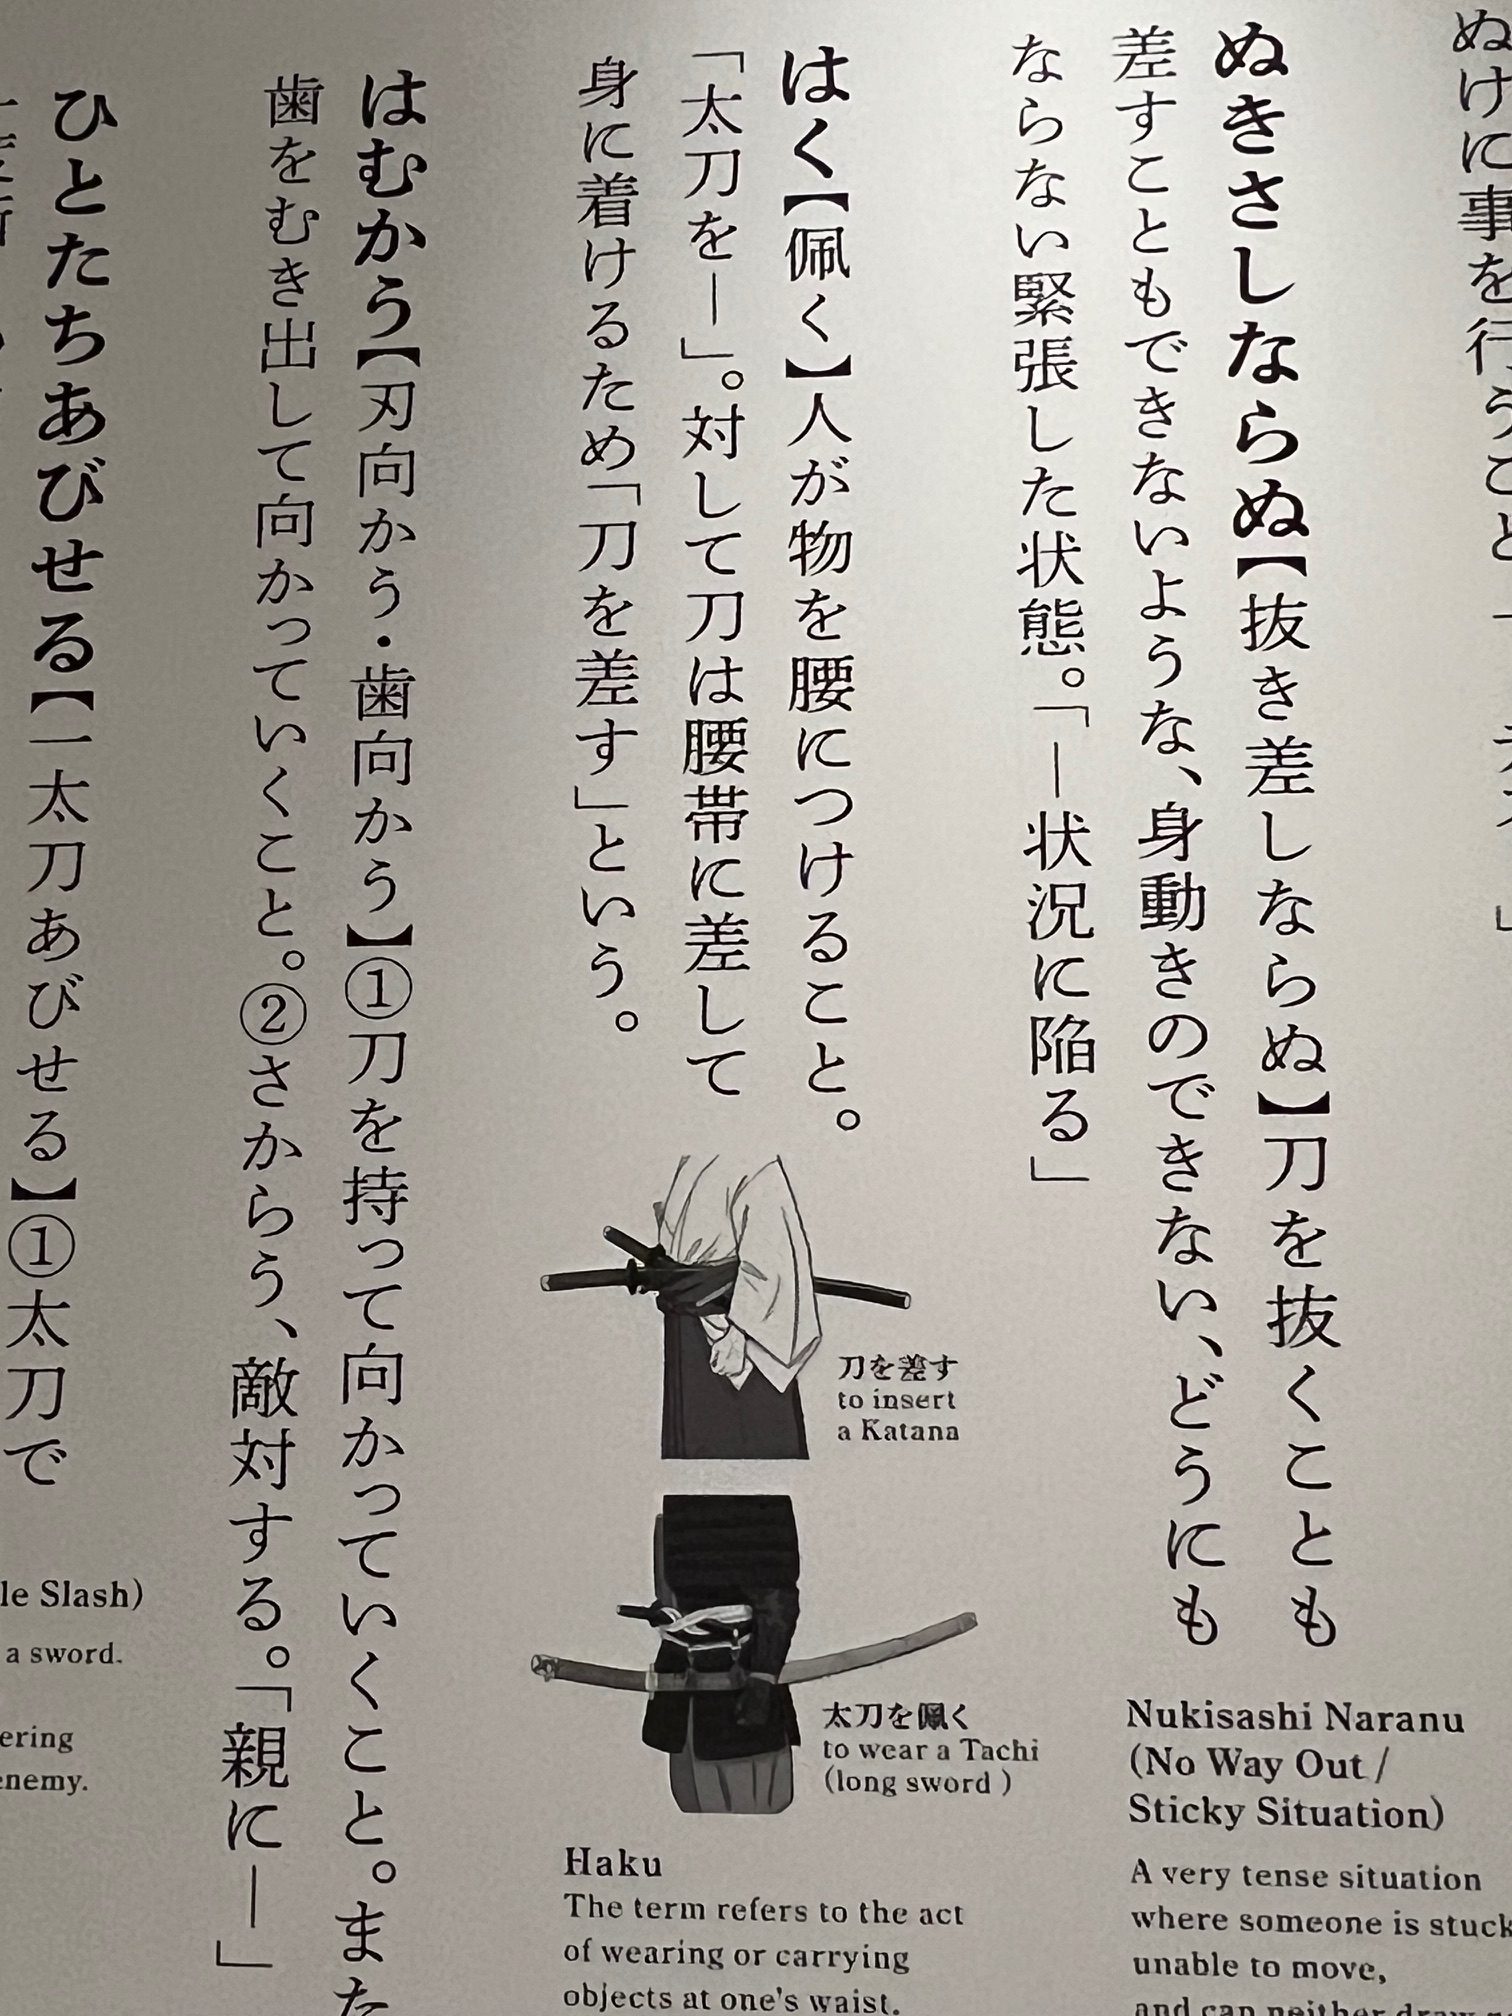 ぬけに事を行うこと
ぬきさしならぬ【抜き差しならぬ】刀を抜くことも
差すこともできないような、身動きのできない、どうにも
ならない緊張した状態。「―状況に陥る」
Nukisashi Naranu
(No Way Out /
Sticky Situation)
A very tense situation
where someone is stuck
unable to move,
and can neither draw
はく【佩く】人が物を腰につけること。
「太刀を―」。対して刀は腰帯に差して
身に着けるため「刀を差す」という。
刀を差す
to insert
a Katana
太刀を佩く
to wear a Tachi
(long sword )
Haku
The term refers to the act
of wearing or carrying
objects at one's waist.
はむかう【刃向かう・歯向かう】①刀を持って向かっていくこと。また
歯をむき出して向かっていくこと。②さからう、敵対する。「親に―」
ひとたちあびせる【一太刀あびせる】①太刀で
le Slash)
a sword.
ering
enemy.